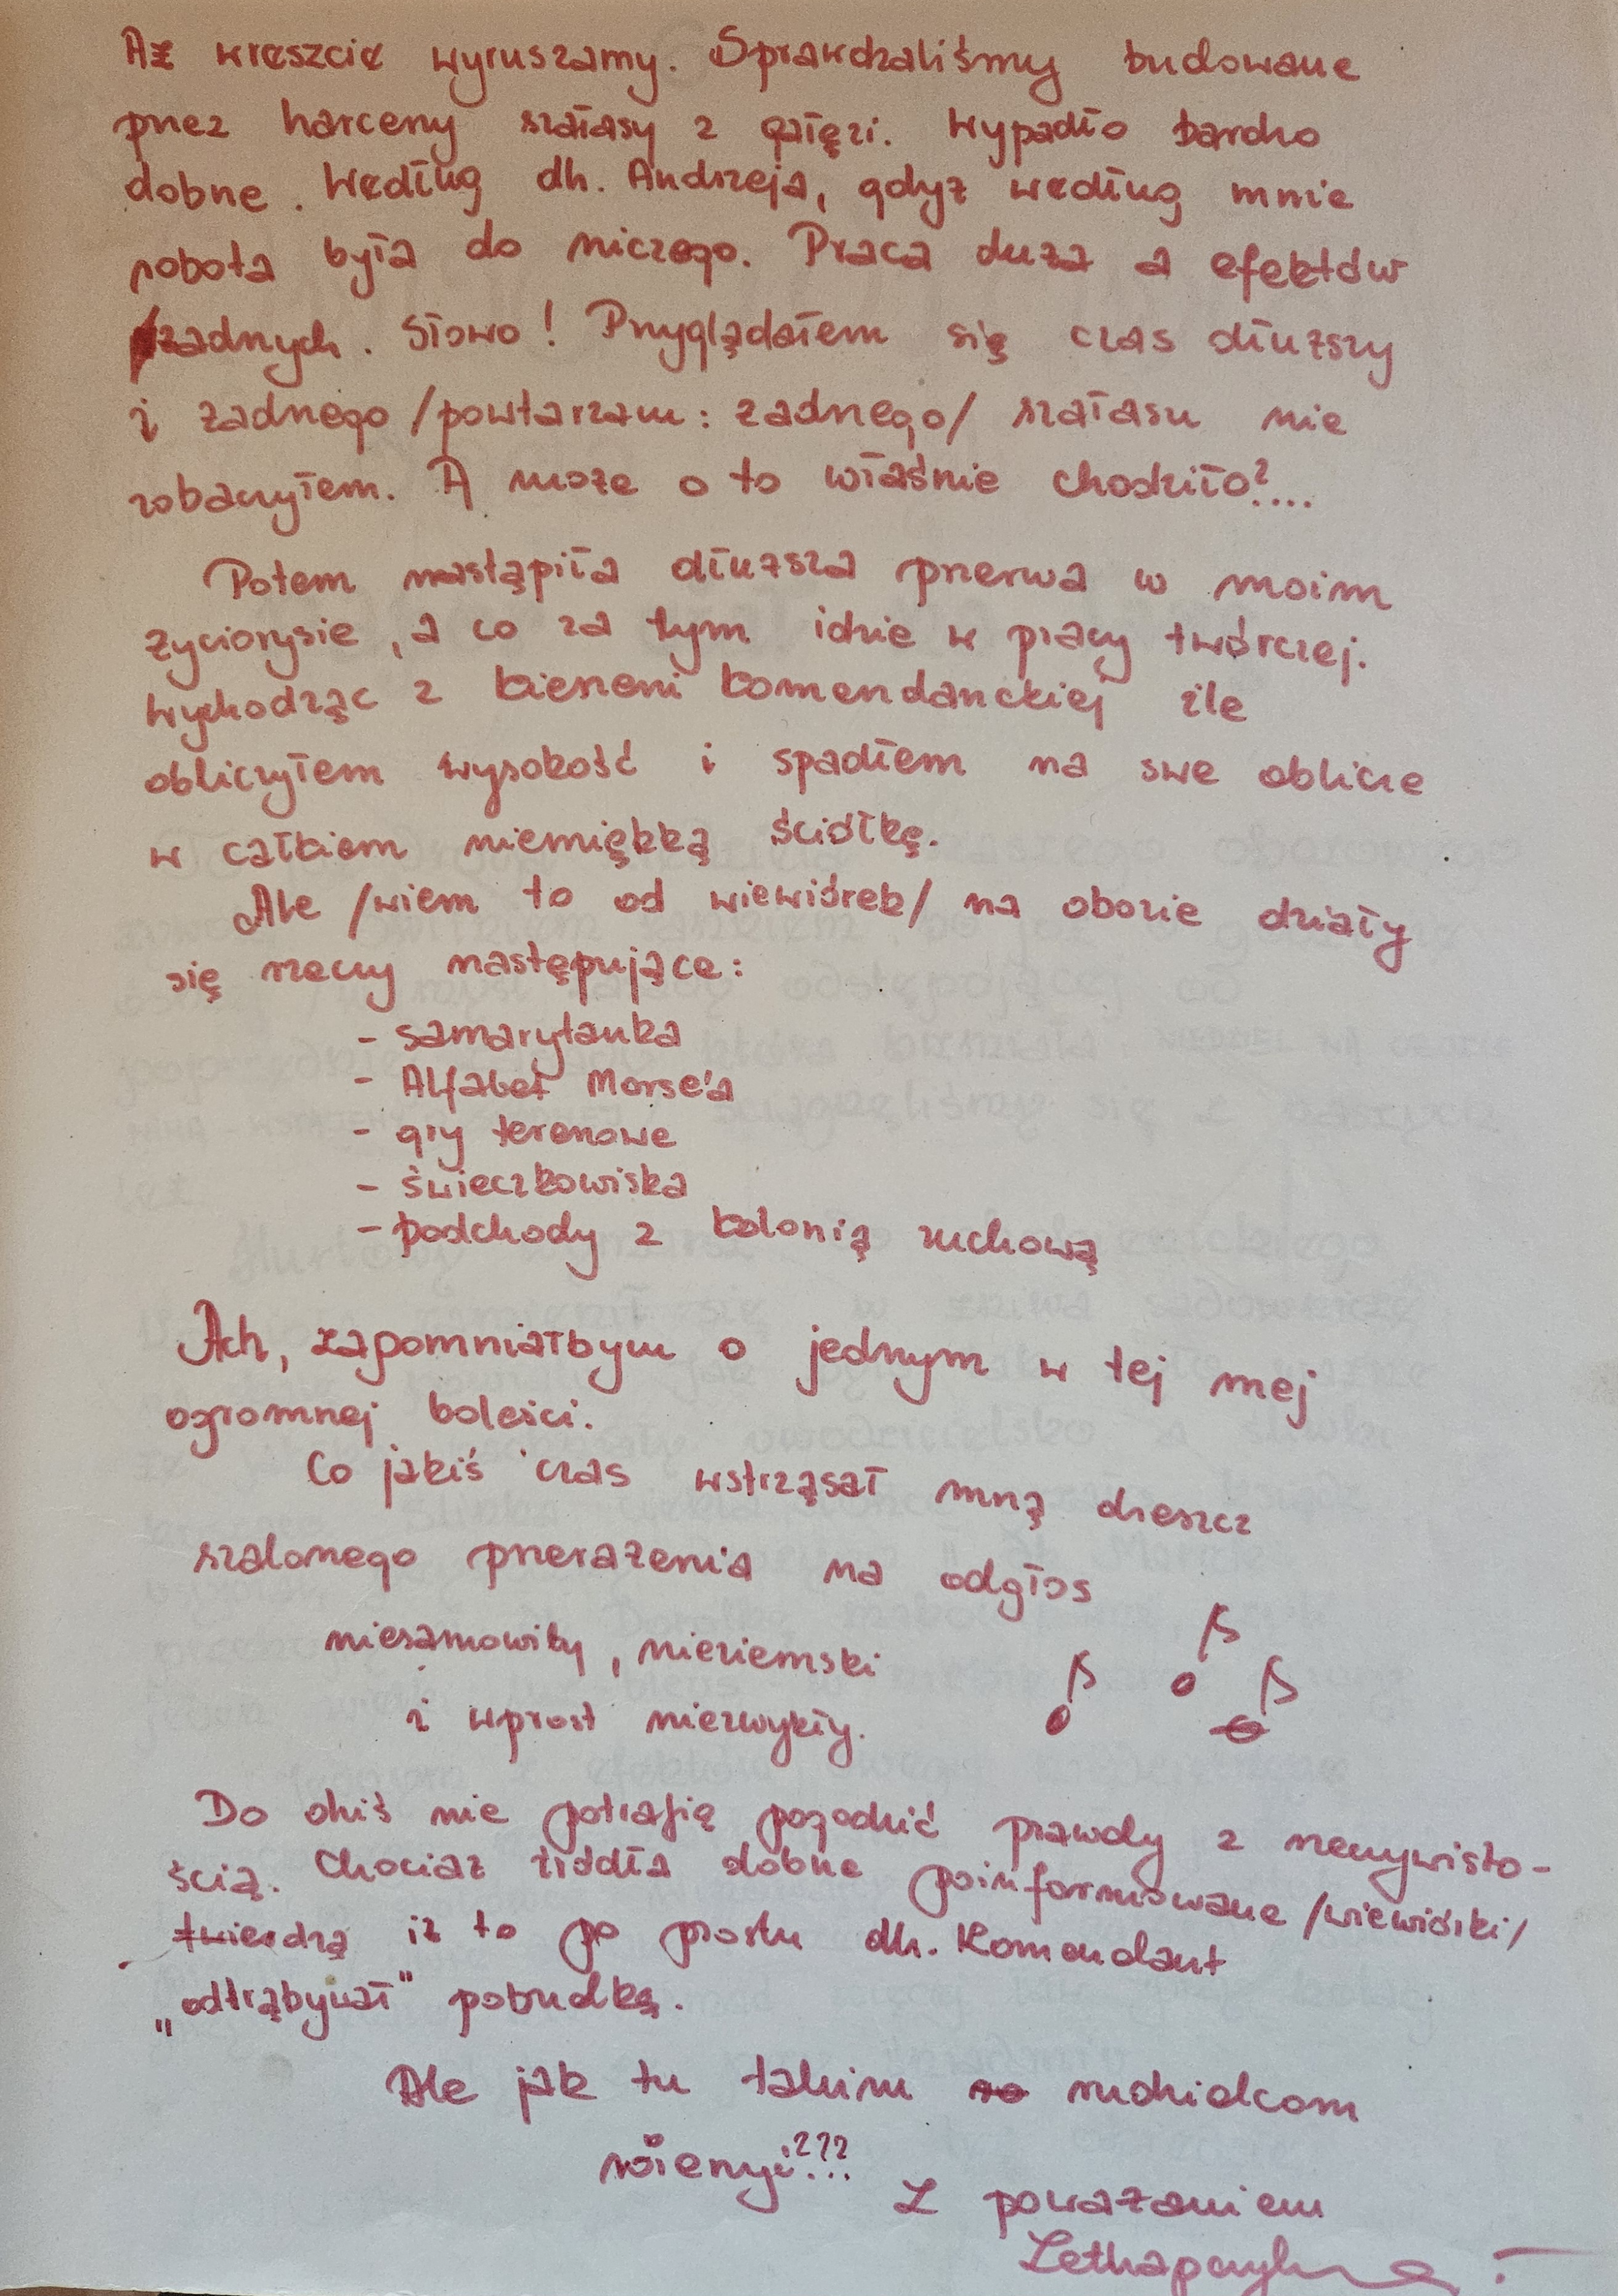 Aż wreszcie wyruszamy. Sprawdzaliśmy budowane
przez harcerzy szałasy z gałęzi. Wypadło bardzo
dobrze. Według dh. Andrzeja, gdyż według mnie
robota była do niczego. Praca duża a efektów
żadnych. Słowo! Przyglądałem się czas dłuższy
i żadnego /powtarzam: żadnego/ szałasu nie
zobaczyłem. A może o to właśnie chodziło?...
Potem nastąpiła dłuższa przerwa w moim
życiorysie, a co za tym idzie w pracy twórczej.
Wychodząc z kieszeni komendanckiej źle
obliczyłem wysokość i spadłem na swe oblicze
w całkiem niemiękką ściółkę.
Ale /wiem to od wiewiórek/ na obozie działy
się rzeczy następujące:
- samarytanka
- Alfabet Morse'a
- gry terenowe
- świeczkowiska
- podchody z kolonią zuchową
Ach, zapomniałbym o jednym w tej mej
ogromnej boleści.
Co jakiś czas wstrząsał mną dreszcz
szalonego przerażenia na odgłos
niesamowity, nieziemski
i wprost niezwykły.
Do dziś nie potrafię pogodzić prawdy z rzeczywisto-
ścią. Chociaż źródła dobrze poinformowane /wiewiórki/
twierdzą iż to po prostu dh. Komendant
„odtrąbywał" pobudkę.
Ale jak tu takim rudzielcom
wierzyć???...
Z poważaniem